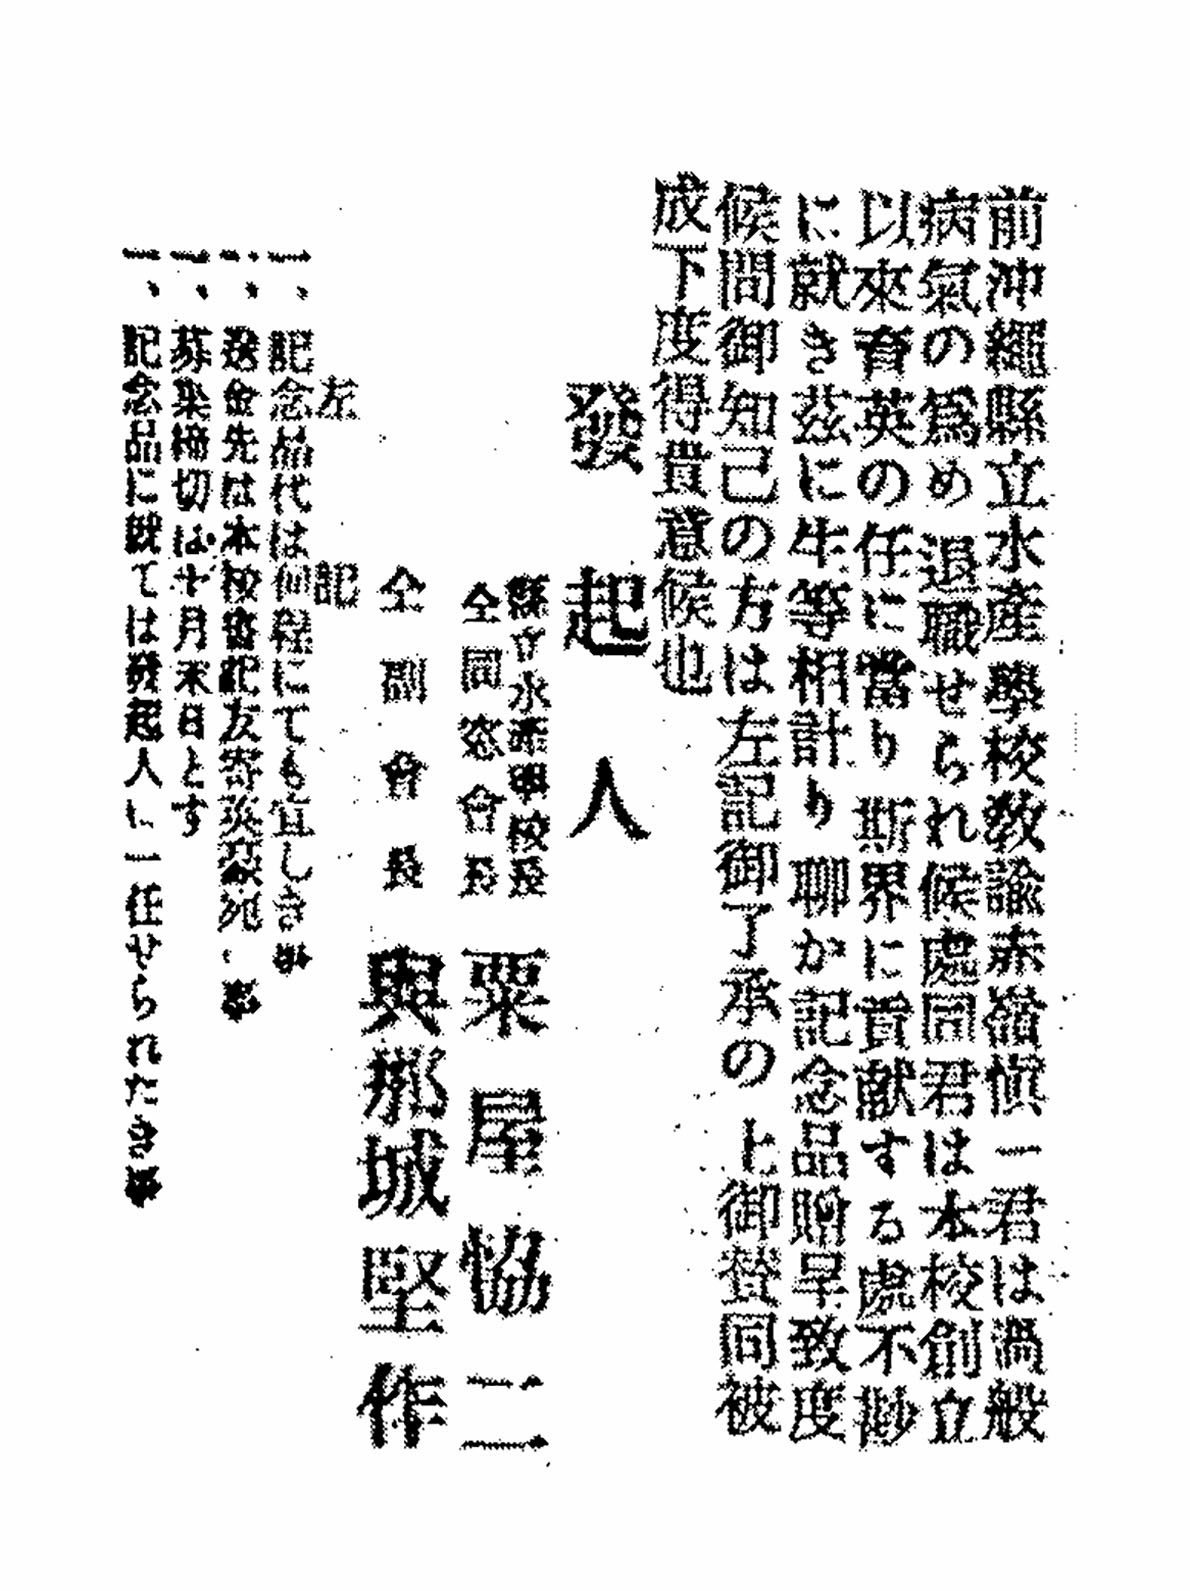 前沖繩縣立水產學校敎諭赤嶺愼一君は過般
病氣の爲め退職せられ候處同君は本校創立
以來育英の任に當り斯界に貢献する處不尠
に就き茲に生等相計り聊か記念品贈呈致度
候間御知己の方は左記御了承の上御賛同被
成下度得貴意候也
發起人
縣立水產學校長
仝同窓會長 粟屋恊二
仝副會長 與那城堅作
左記
一、記念品代は何程にても宜しき事
一、送金先は本校書記友寄英 宛の事
一、募集締切は十月末日とす
一、記念品に就ては發起人に一任せられたき事